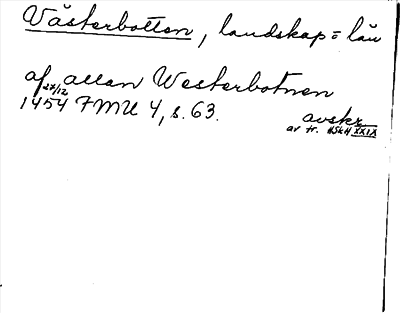 Västerbotten, landskap = län
af allan Westerbotnen
27/12 1454 FMU 4, s. 63. avskr.
av tr. HSkH XXIX